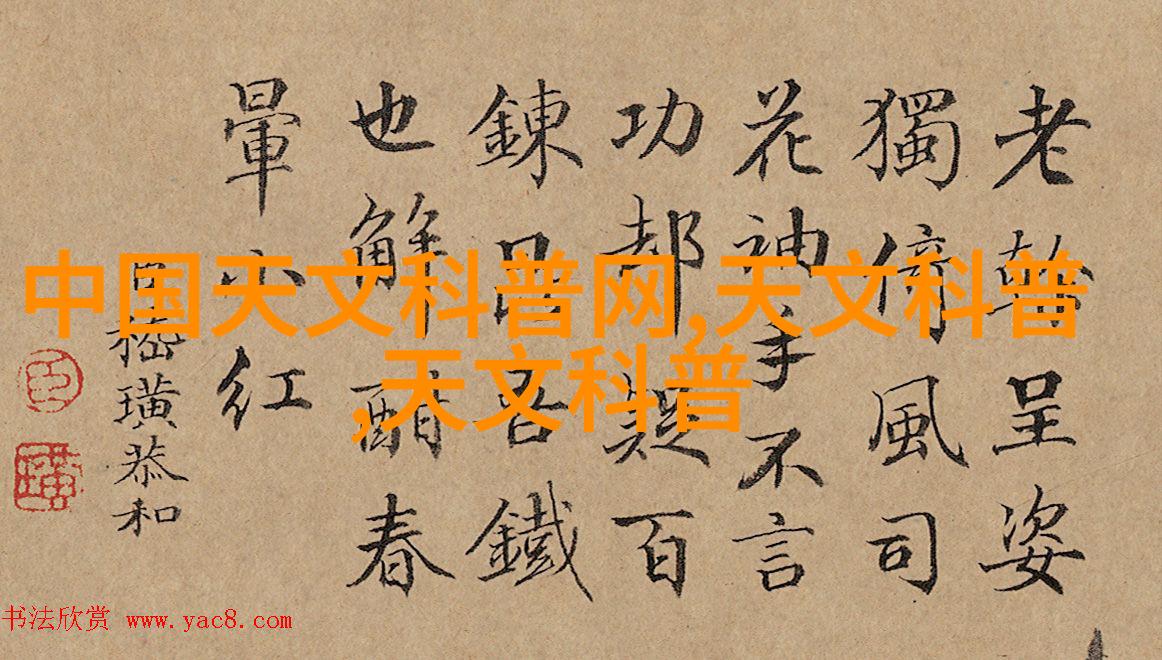 老幹呈姿
獨倚風司
花神手不言
功却疑百
鍊 鐵
也解酣春
暈小紅
臣嵇璜恭和
臣
璜
中国天文科普网,天文科普
,天文科普
书法欣赏 www.yac8.com